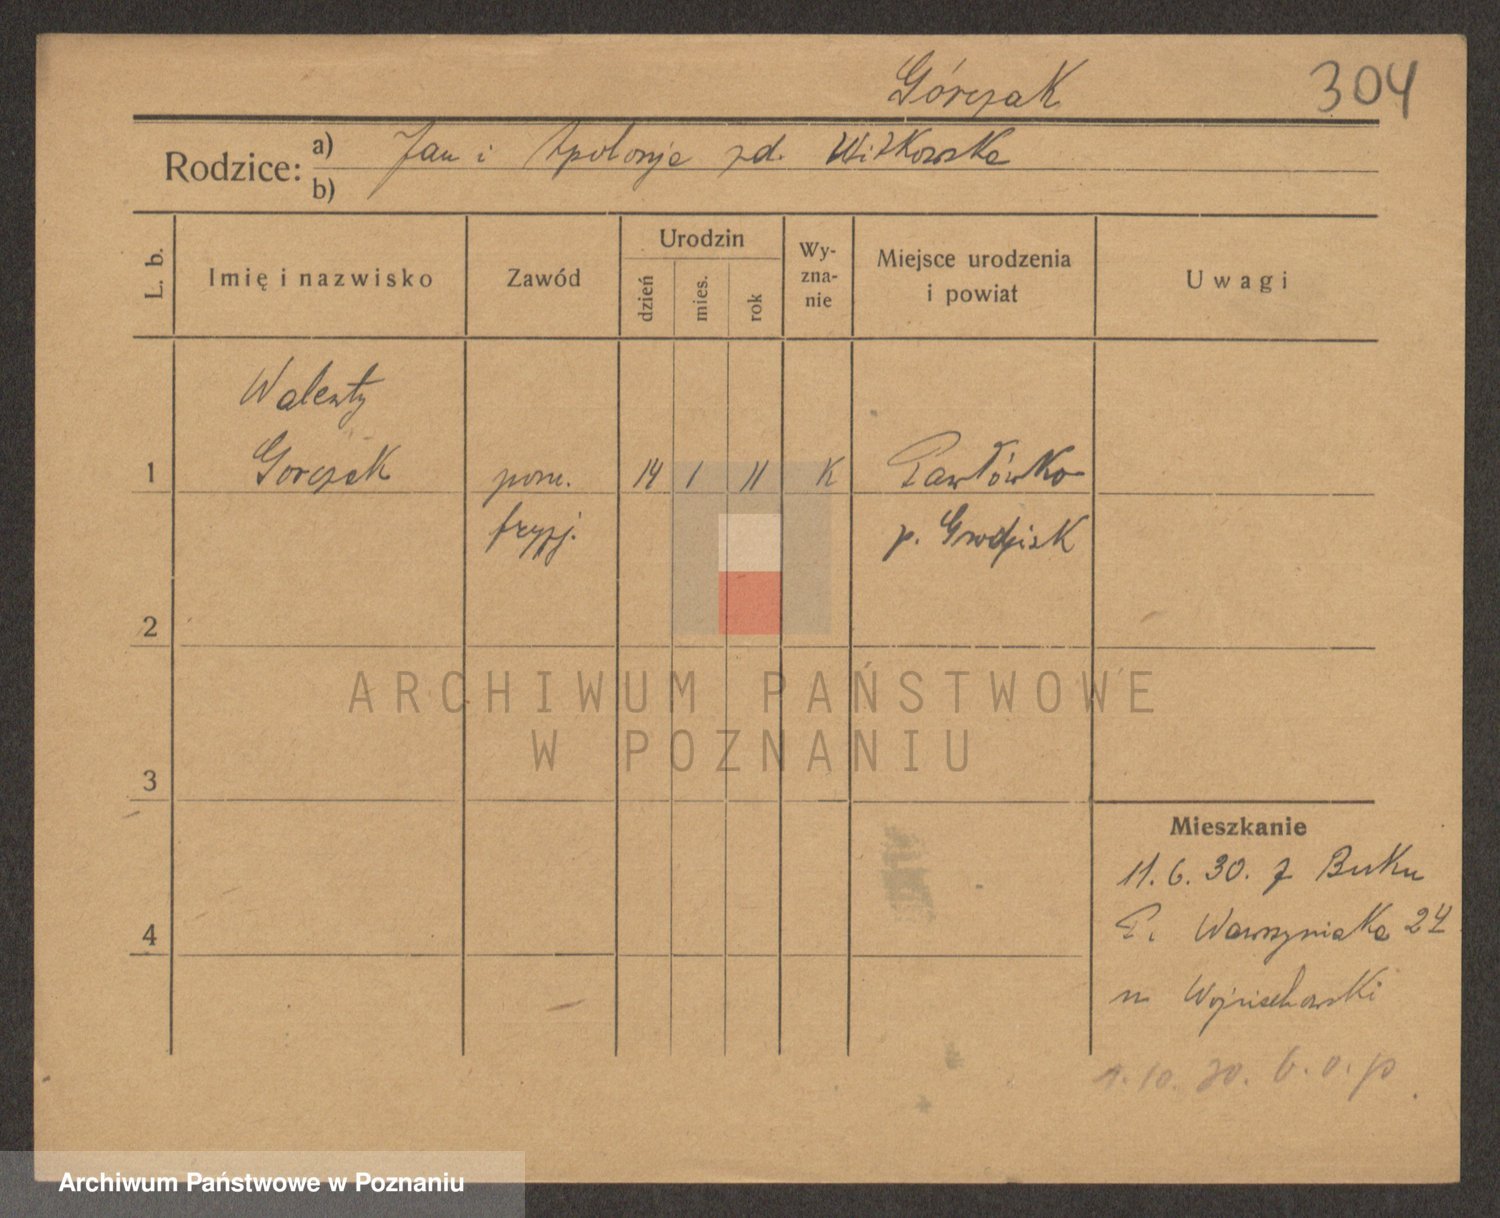 Górczak
304
Rodzice:
a) Jan i Apolonja zd. Witkowska
b)
L. b.
Imię i nazwisko
Zawód
Urodzin
dzień
mies.
rok
Wy-
zna-
nie
Miejsce urodzenia
i powiat
Uwagi
Walenty
1 Gorczak pom. 14 1 11 K Pawłówko
fryzj. p. Grodzisk
2
3
Mieszkanie
11.6.30. z Buku
Wawrzyniaka 24
4
u Wojciechowski
1.10.30. b.o.p
ARCHIWUM PAŃSTWOWE
W POZNANIU
Archiwum Państwowe w Poznaniu